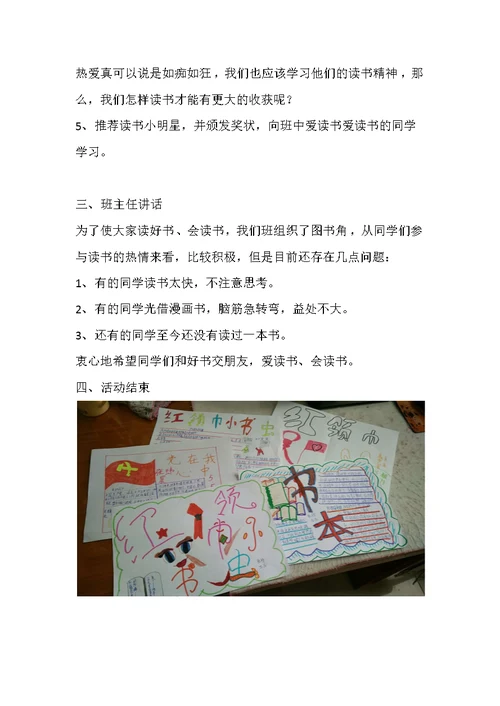 热爱真可以说是如痴如狂，我们也应该学习他们的读书精神，那
么，我们怎样读书才能有更大的收获呢？
5、推荐读书小明星，并颁发奖状，向班中爱读书爱读书的同学
学习。
三、班主任讲话
为了使大家读好书、会读书，我们班组织了图书角，从同学们参
与读书的热情来看，比较积极，但是目前还存在几点问题：
1、有的同学读书太快，不注意思考。
2、有的同学光借漫画书，脑筋急转弯，益处不大。
3、还有的同学至今还没有读过一本书。
衷心地希望同学们和好书交朋友，爱读书、会读书。
四、活动结束
红领巾小书虫
红领巾
党在我
中
书
本
红领巾小
书虫